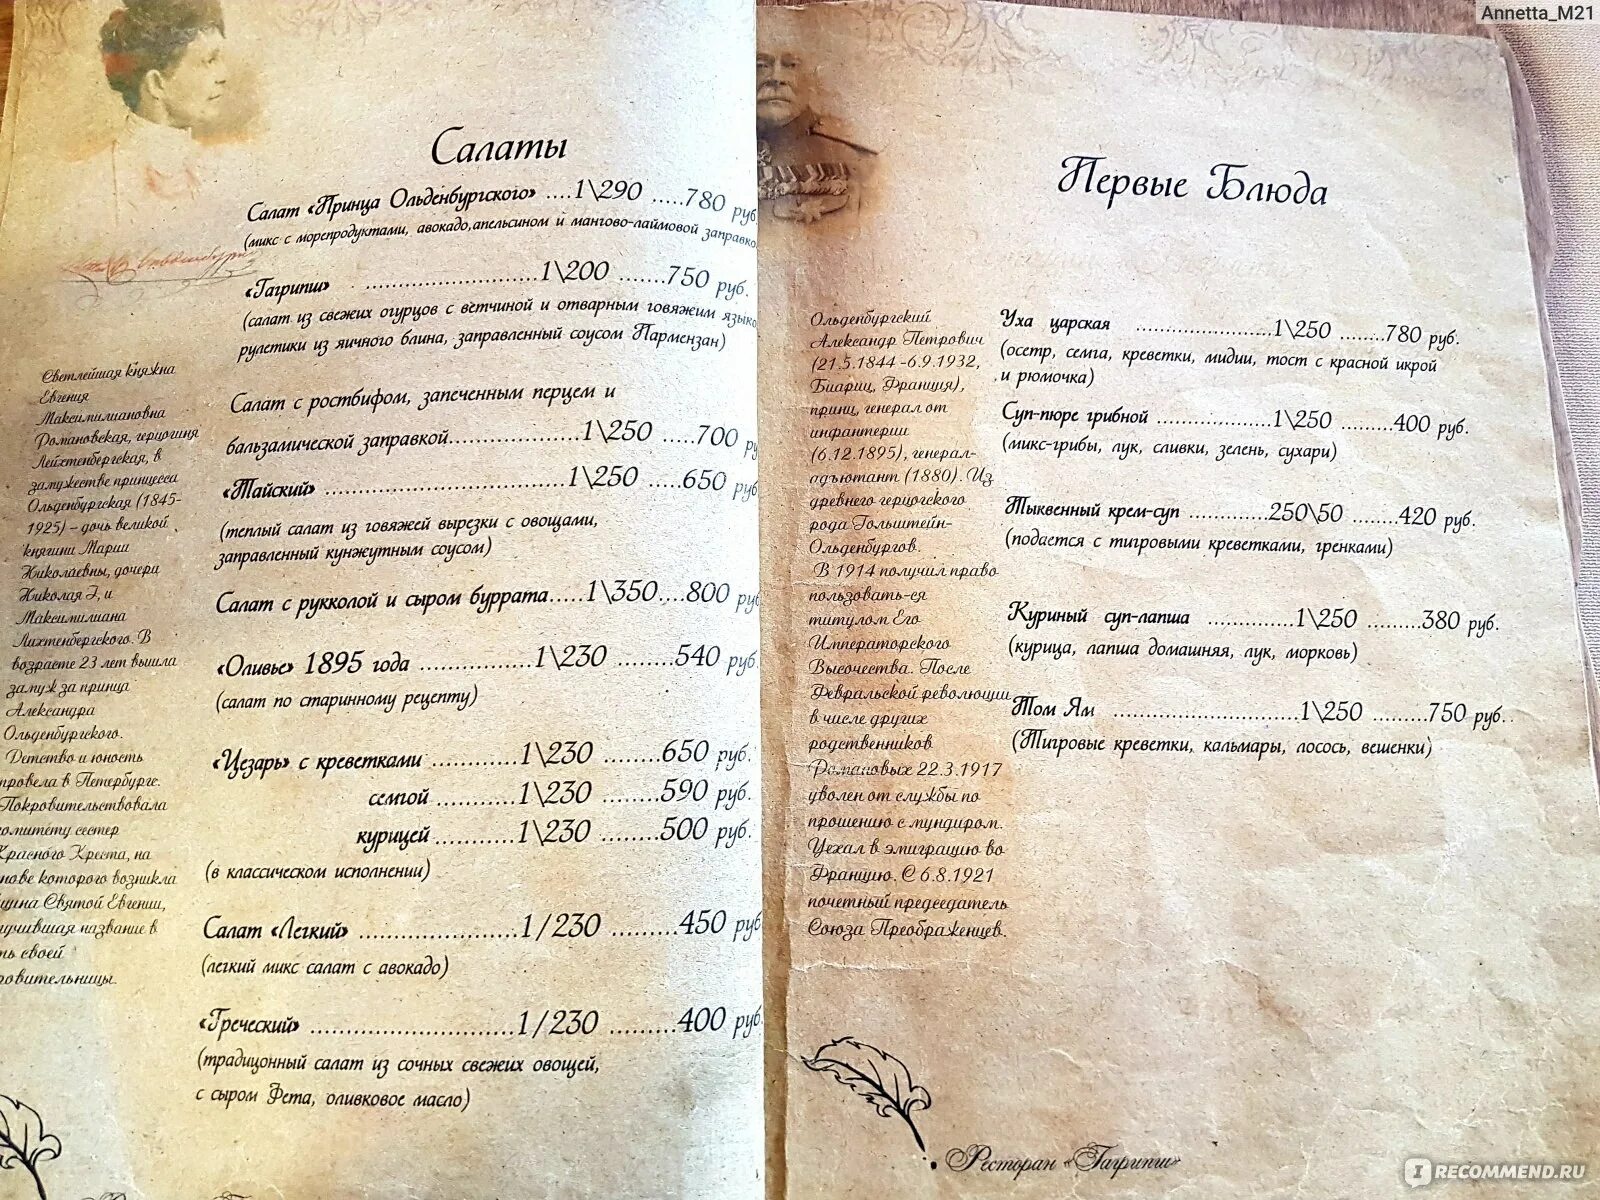 Annetta_M21
Салаты
Салат «Принца Ольденбургского» ....1\290 .....780 руб
(микс с морепродуктами, авокадо,апельсином и мангово-лаймовой заправко
«Гагрипш» ........................1\200 .......750 руб.
(салат из свежих огурцов с ветчиной и отварным говяжим языко
рулетики из яичного блина, заправленный соусом Пармензан)
Салат с ростбифом, запеченным перцем и
бальзамической заправкой...................1\250 .....700 ру
«Тайский» ..................................1\250 ......650 руб
(теплый салат из говяжей вырезки с овощами,
заправленный кунжутным соусом)
Салат с рукколой и сыром буррата.....1\350....800 руб
«Оливье» 1895 года ................1\230 .........540 руб
(салат по старинному рецепту)
«Цезарь» с креветками ............1\230 .........650 руб.
семгой ............1\230 .........590 руб.
курицей ............1\230 .........500 руб.
(в классическом исполнении)
Салат «Легкий» .......................1/230 ..........450 руб
(легкий микс салат с авокадо)
«Греческий» .............................1/230 ..........400 руб.
(традицонный салат из сочных свежих овощей,
с сыром Фета, оливковое масло)
Светлейшая княжна
Евгения
Максимилиановна
Романовская, герцогиня
Лейхтенбергская, в
замужестве принцесса
Ольденбургская (1845-
1925) – дочь великой
княгини Марии
Николаевны, дочери
Николая I, и
Максимилиана
Лихтенбергского. В
возрасте 23 лет вышла
замуж за принца
Александра
Ольденбургского.
Детство и юность
провела в Петербурге.
Покровительствовала
омитету сестер
Красного Креста, на
нове которого возникла
щина Святой Евгении,
учившая название в
ть своей
ровительницы.
Первые Блюда
Уха царская ......................1\250 .........780 руб.
(осетр, семга, креветки, мидии, тост с красной икрой
и рюмочка)
Суп-пюре грибной ..................1\250 ..........400 руб.
(микс-грибы, лук, сливки, зелень, сухари)
Тыквенный крем-суп ..............250\50 ........420 руб.
(подается с тигровыми креветками, гренками)
Куриный суп-лапша ..............1\250 ..........380 руб.
(курица, лапша домашняя, лук, морковь)
Том Ям ..............................1\250 .........750 руб..
(Тигровые креветки, кальмары, лосось, вешенки)
Ольденбургский
Александр Петрович
(21.5.1844 -6.9.1932,
Биариц, Франция),
принц, генерал от
инфантерии
(6.12.1895), генерал-
адъютант (1880). Из
древнего герцогского
рода Гольштейн-
Ольденбургов.
В 1914 получил право
пользовать-ся
титулом Его
Императорского
Высочества. После
Февральской революции
в числе других
родственников
Романовых 22.3.1917
уволен от службы по
прошению с мундиром.
Уехал в эмиграцию во
Францию. С 6.8.1921
почетный председатель
Союза Преображенцев.
Ресторан «Гагрипш»
IRECOMMEND.RU